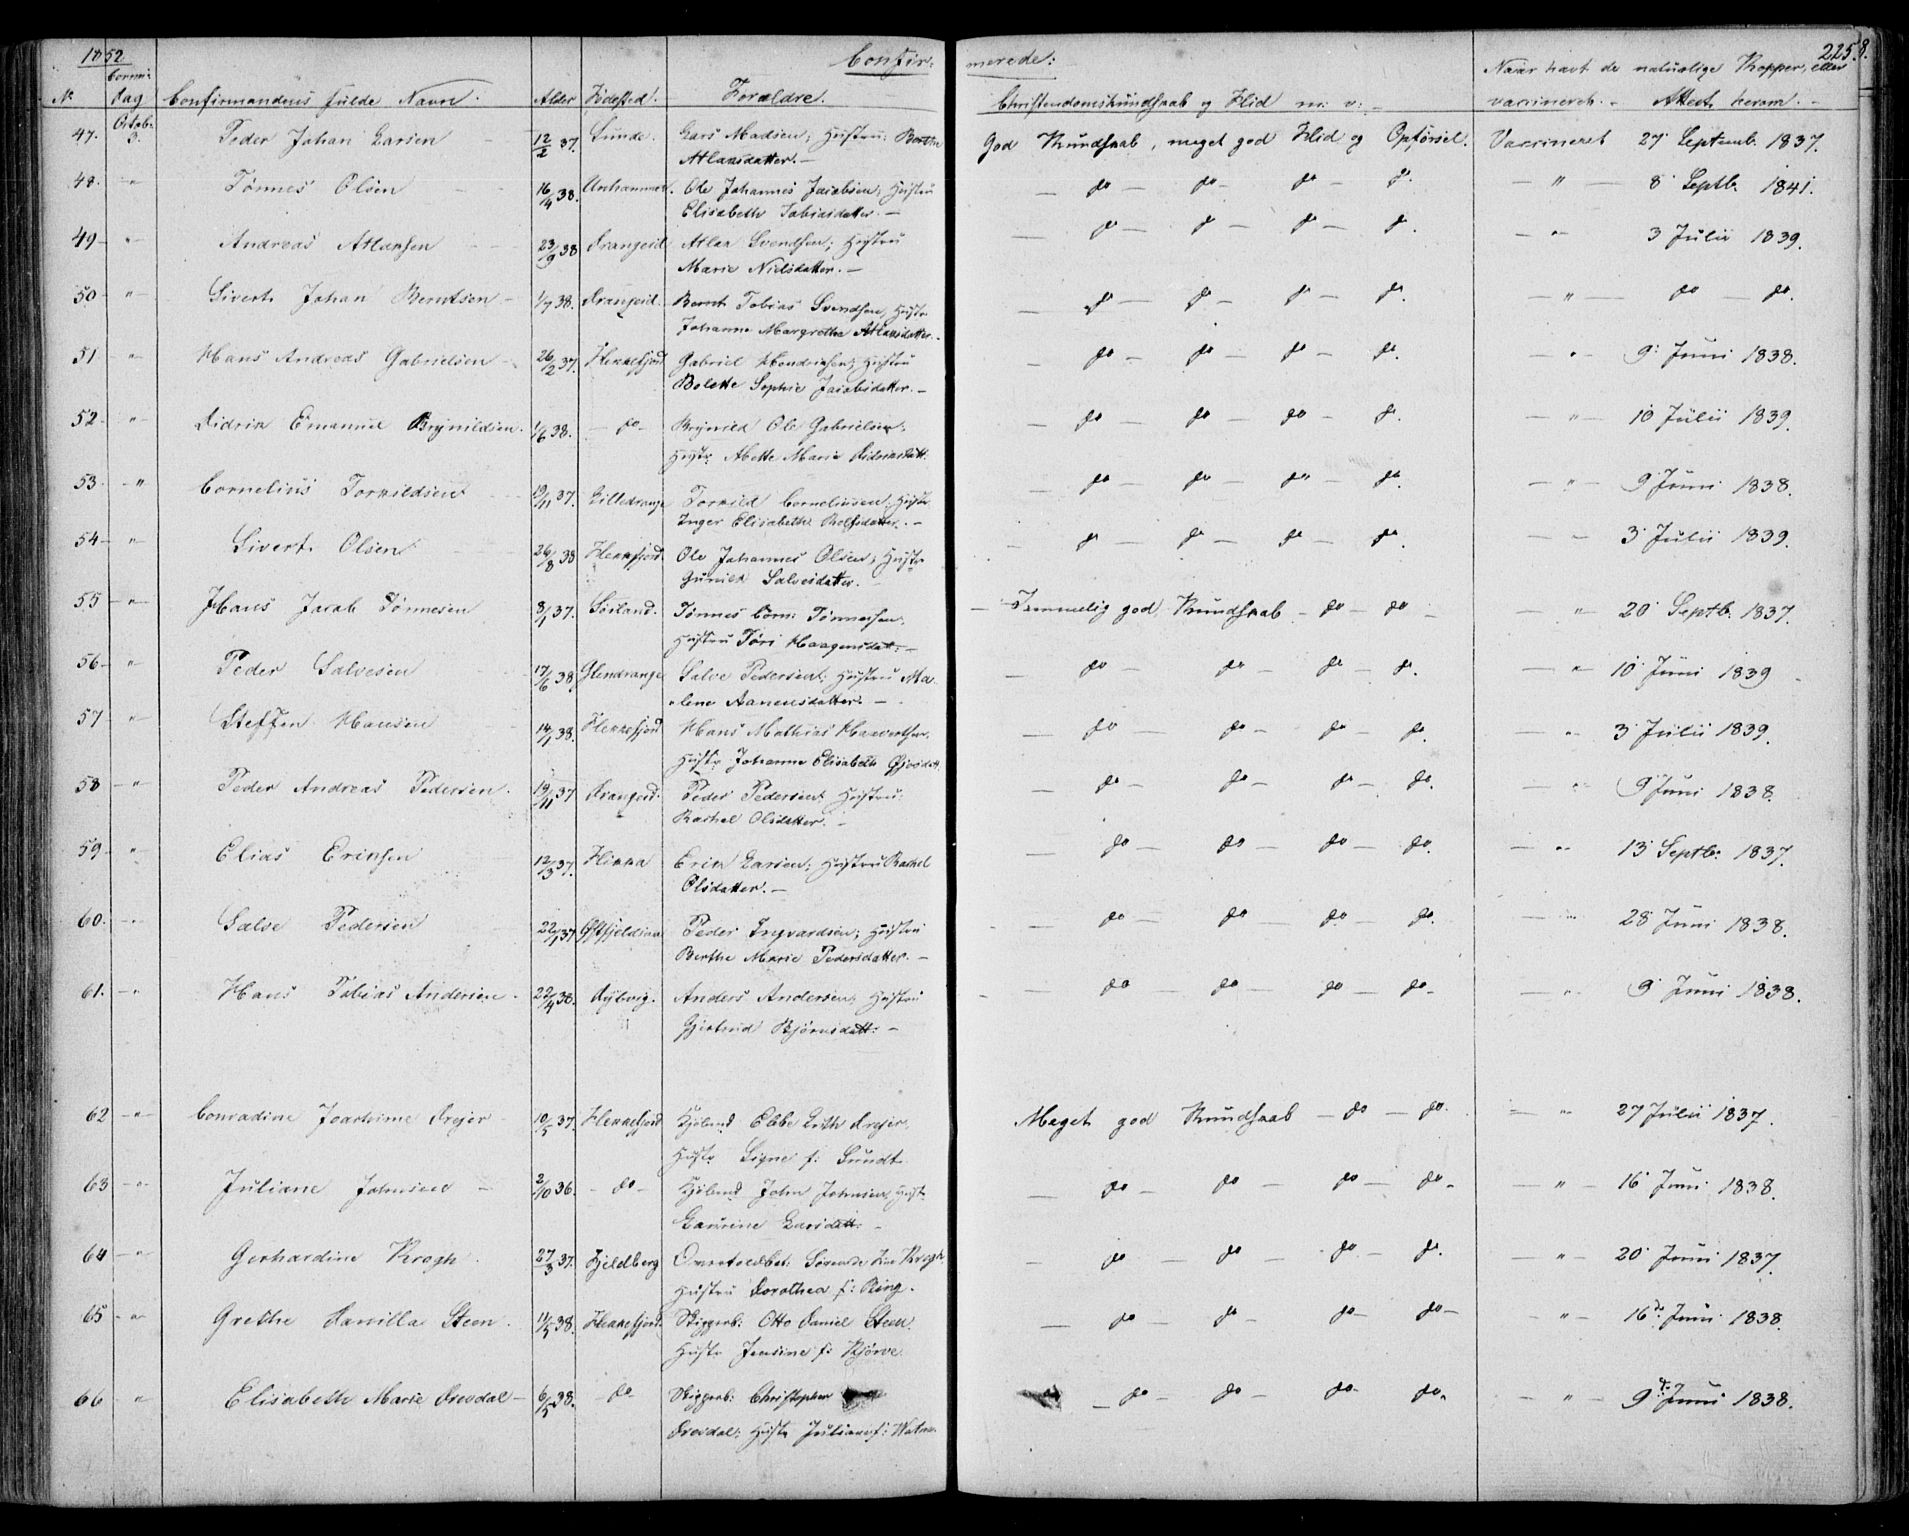 1852 Confir- merede: 225.
No Confirm: Dag Confirmandens fulde Navn. Alder Fødested. Forældre. Christendomskundskab og Flid m: v: Naar havt de naturlige Kopper, eller vaccineret. Attest herom.
47. Octob: 3. Peder Johan Larsen 12/2 37. Sunde. Lars Madsen; Hustru: Berthe God Kundskab, meget god Flid og Opførsel. Vaccineret 27 Septemb. 1837.
Atlaksdatter.
48. " Tønnes Olsen 16/4 38. Ole Johannes Jacobsen; Hustru - do - do - do - do. - " - 8 Septb. 1841.
Elisabeth Tobiasdatter.
49 " Andreas Atlaksen 23/9 38 Drangeid Atlak Svendsen; Hustru - do - do - do - do. - " 3 Julii 1839.
Marie Nielsdatter.
50 " Sivert Johan Berntsen 1/7 38. Drangeid. Bernt Tobias Svendsen, Hustr - do - do - do - do. - " - do - do.
Johanne Margrethe Atlaksdatter.
51 " Hans Andreas Gabrielsen 26/2 37. Flekkefjord Gabriel Hendriksen; Hustru - do - do - do - do. - " - 9 Juni 1838.
Bolette Sophie Jacobsdatter.
52 " Didrik Emanuel Brynildsen. 1/6 38. - do - Brynild Ole Gabrielsen, do - do - do - do. - " - 10 Julii 1839.
Hustr. Abette Marie Didriksdatt.
53. " Cornelius Torkildsen 19/11 37. Lilledrange Torkild Corneliussen; Hustr. - do - do - do - do. - " - 9 Juni 1838.
Inger Elisabeth Rolfsdatter.
54 " Sivert Olsen 26/8 38 Flekkefjord. Ole Johannes Olsen; Hustr - do - do - do - do. - " 3 Julii 1839.
Gunild Salvesdatter.
55 " Hans Jacob Tønnesen 8/1 37. Sørland. Tønnes Corn: Tønnesen. - Temmelig god Kundskab - do - do - - " 20 Septb. 1837.
Hustru Tøri Haagensdatt:
56 " Peder Salvesen 17/6 38 Glendrange Salve Pedersen; Hustru Ma- - do - do - do - do. - " 10 Juni 1839
lene Aanensdatter.
57 " Steffen Hansen 14/1 38. Flekkefjord Hans Mathias - do - do - do - do. - " 3 Julii 1839.
Hustr. Johanne Elisabeth
58 " Peder Andreas Pedersen. 19/11 37 Drangeid. Peder Pedersen Hustru: - do - do - do - do. - " 9 Juni 1838.
Rachel Olsdatter.
59 " Elias Eriksen 12/3 37. Flikka Erik Larsen; Hustru Rachel - do - do - do - do. - " 13 Septb. 1837.
Olsdatter.
60. " Salve Pedersen 22/1 37 Peder Ingvardsen; Hustru - do - do - do - do. - " 28 Juni 1838.
Berthe Marie Pedersdatter.
61. " Hans Tobias Andersen. 22/4 38. Rybvig. Anders Andersen; Hustru - do - do - do - do - - " - 9 Juni 1838.
Gjertrud Bjørnsdatt:
62 " Conradine Joachime Drejer 10/5 37. Flekkefjord Kjøbmd Ebbe Krith Drejer, Meget god Kundskab - do - do. - " 27 Julii 1837.
Hustr Signe f: Sundt
63 " Juliane Johnsen 2/10 36. - do - Kjøbmd John Johnsen Hustr - do - do - do - do - - " - 16 Juni 1838.
Laurine Larsdatt:
64 " Gerhardine Krogh 27/3 37. Fjeldberg Overtoldbet: Krogh - do - do - do - do. - " 20 Juni 1837.
Hustru Dorothea f: Ring.
65 " Grethe Hanilla Steen. 11/5 38. Flekkefjord. Skipperb: Otto Daniel Steen. - do - do - do - do - - " - 16de Juni 1838.
Hustr Jensine f: Kjørve.
66 " Elisabeth Marie Dresdal 6/5 38. - do Skipperb: Christopher - do - do - do - do. - " - 9de Juni 1838.
Dresdal; Hustr. Juliane f: Watne.